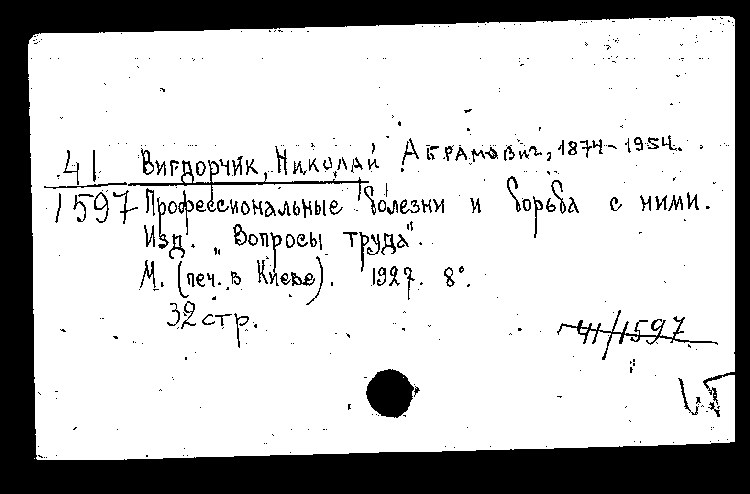 41 Вигдорчик, Николай Абрамович, 1874-1954.
1597 Профессиональные болезни и борьба с ними.
Изд. „Вопросы труда".
М. (печ. в Киеве). 1927. 8°.
32 стр.
41/1597